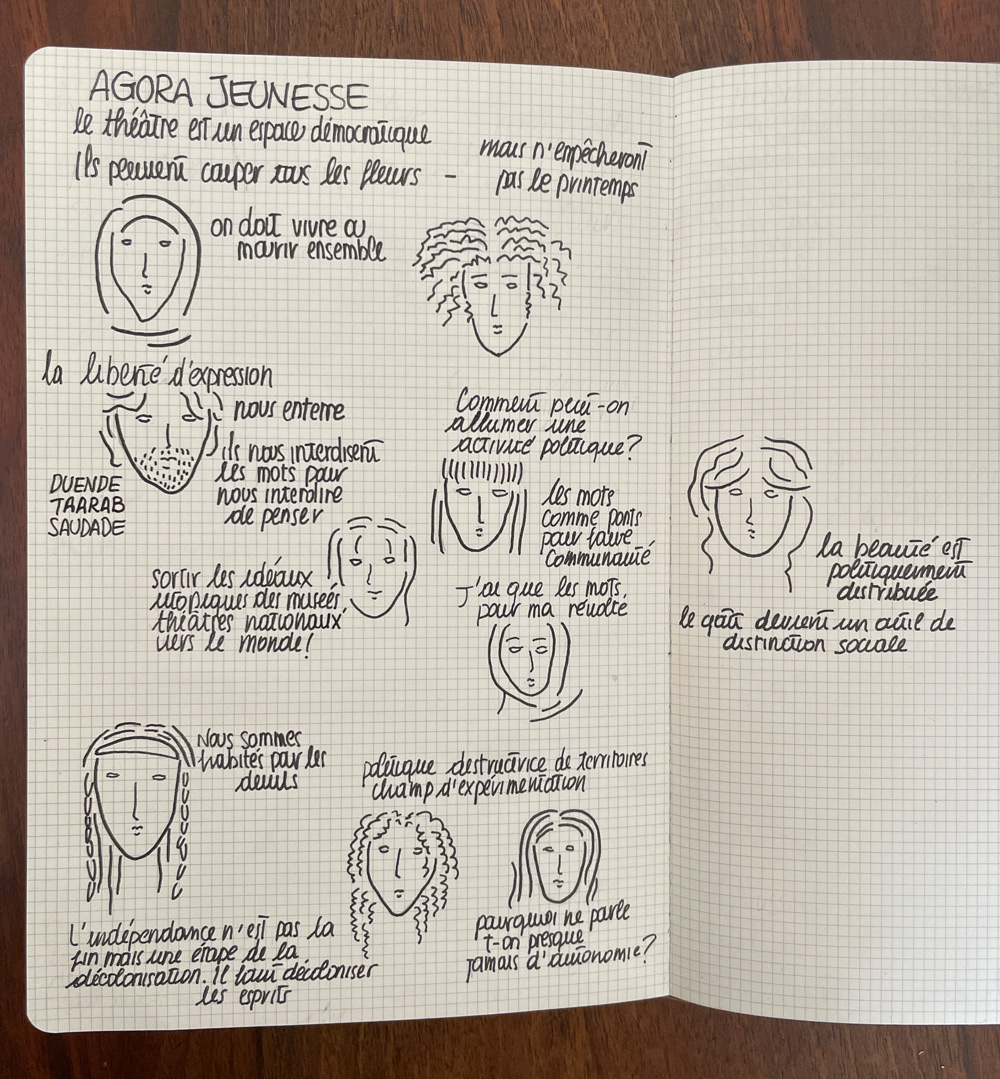 AGORA JEUNESSE
le théâtre est un espace démocratique
Ils peuvent couper tous les fleurs –
mais n'empêcheront
pas le printemps
on doit vivre ou
mourir ensemble
la liberté d'expression
nous enterre
ils nous interdisent
les mots pour
nous interdire
de penser
DUENDE
TAARAB
SAUDADE
Comment peut-on
allumer une
activité politique?
les mots
comme ponts
pour faire
communauté
sortir les idéaux
utopiques des musées,
théâtres nationaux
vers le monde!
J'ai que les mots,
pour ma révolte
la beauté est
politiquement
distribuée
le goût devient un outil de
distinction sociale
Nous sommes
habités par les
deuils
politique destructrice de territoires
champ d'expérimentation
L'indépendance n'est pas la
fin mais une étape de la
décolonisation. Il faut décoloniser
les esprits
pourquoi ne parle
t-on presque
jamais d'autonomie?